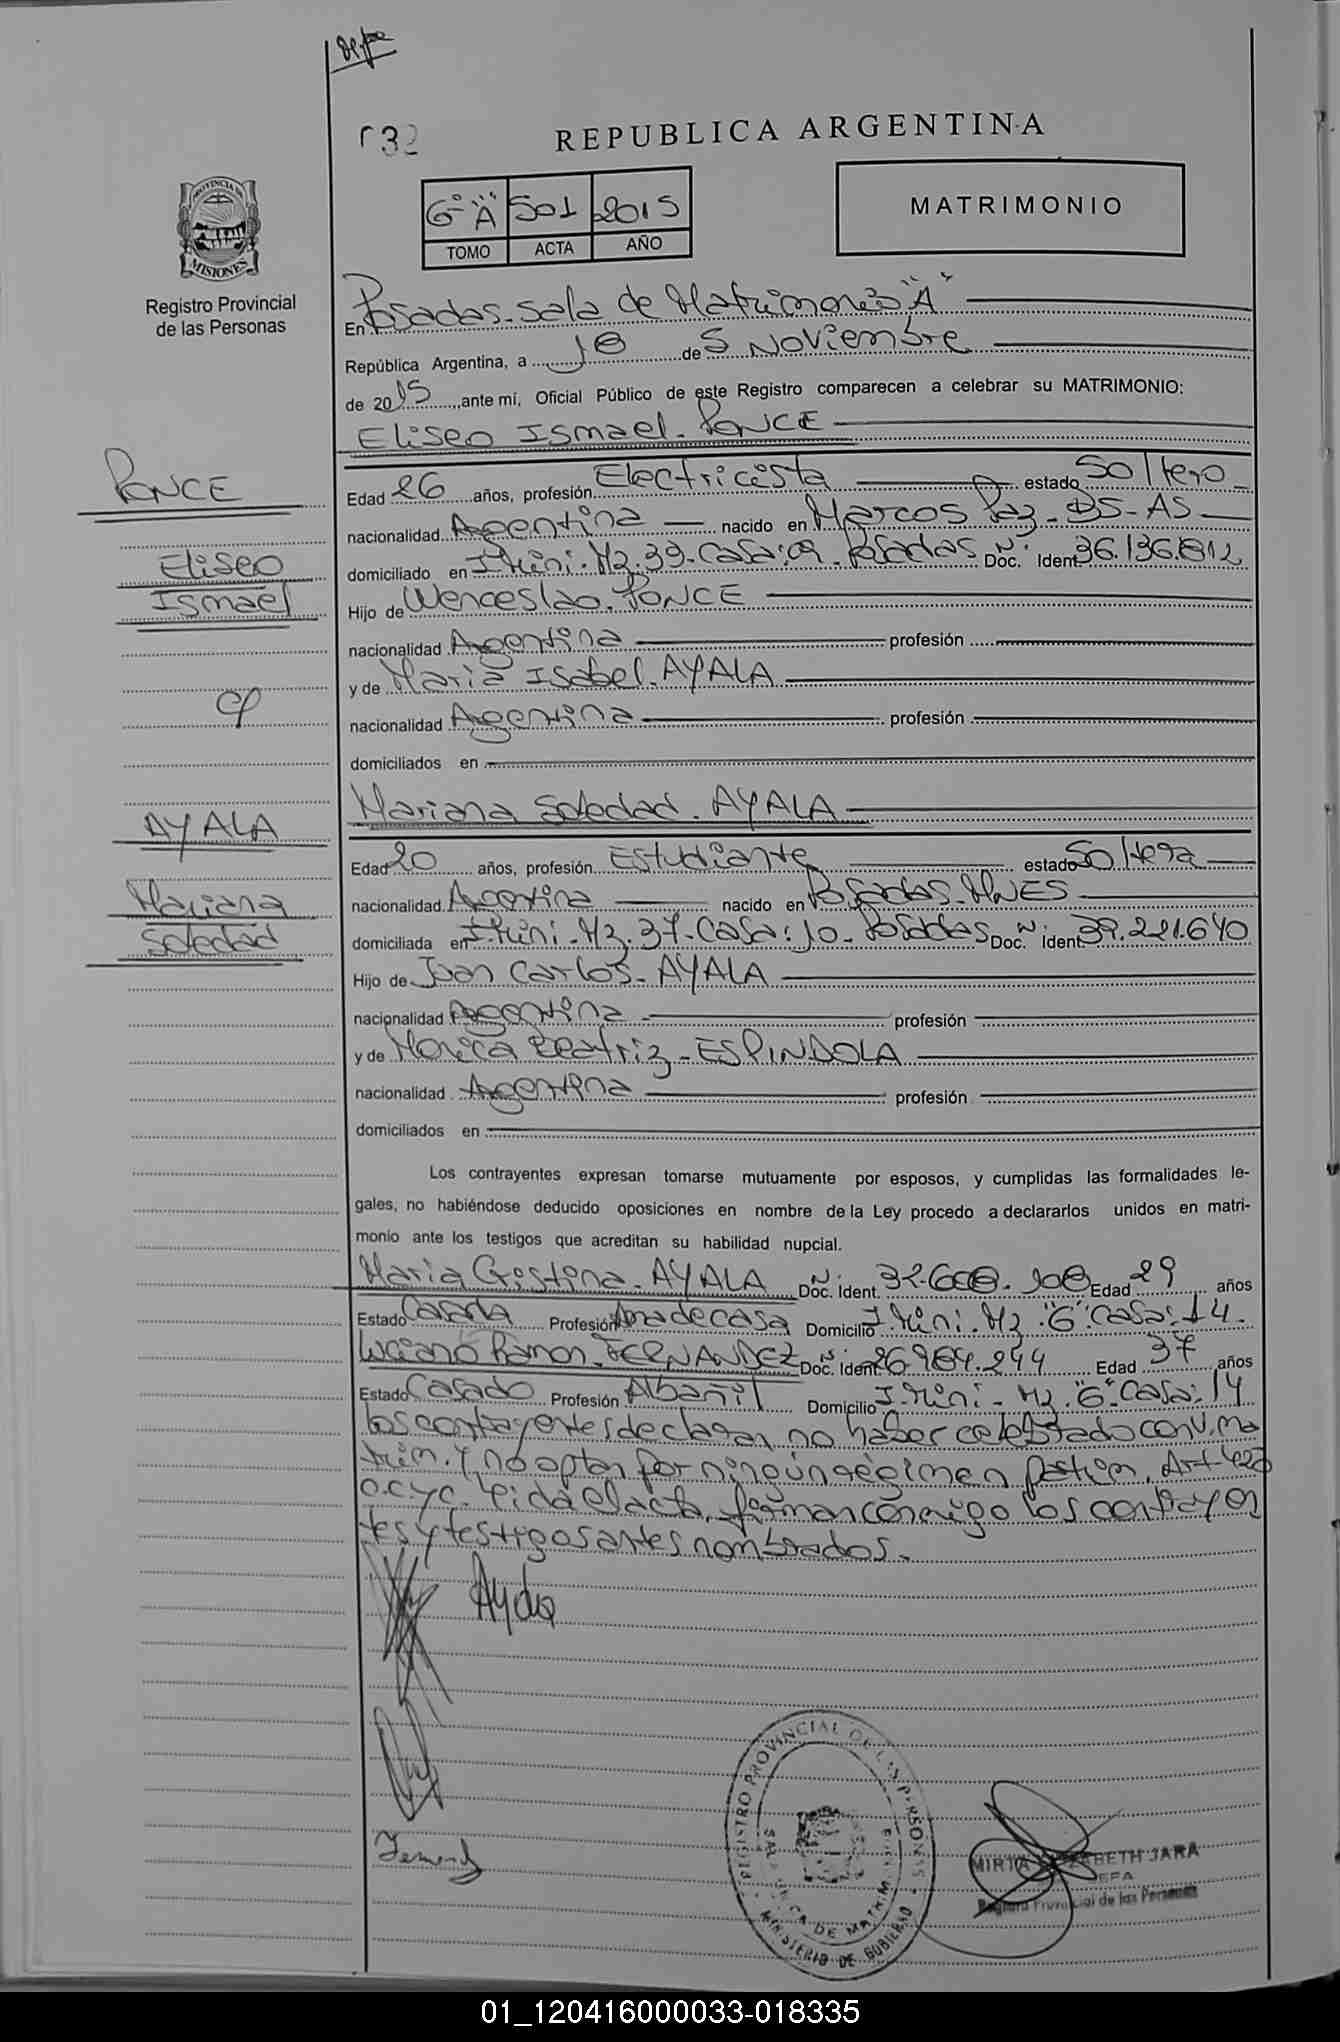 132
REPUBLICA ARGENTINA
6º "A" 501 2015
TOMO ACTA AÑO
MATRIMONIO
PROVINCIA DE
MISIONES
Registro Provincial
de las Personas
En Posadas. Sala de Matrimonio "A"
República Argentina, a 18 de Noviembre
de 2015, ante mí, Oficial Público de este Registro comparecen a celebrar su MATRIMONIO:
Eliseo Ismael. PONCE
PONCE
Eliseo
Ismael
Edad 26 años, profesión Electricista estado Soltero
nacionalidad Argentina nacido en Marcos Paz - BS-AS
domiciliado en I.Miní. Mz. 39. Casa: 09. Posadas Doc. Nº Ident. 36.136.812
Hijo de Wenceslao. PONCE
nacionalidad Argentina profesión
y de Maria Isabel. AYALA
nacionalidad Argentina profesión
domiciliados en
Mariana Soledad. AYALA
AYALA
Mariana
Soledad
Edad 20 años, profesión Estudiante estado Soltera
nacionalidad Argentina nacido en Posadas. MNES
domiciliada en I.Miní - Mz. 37. Casa: 10. Posadas Doc. Nº Ident. 39.221.640
Hijo de Juan Carlos. AYALA
nacionalidad Argentina profesión
y de Monica Beatriz. ESPINDOLA
nacionalidad Argentina profesión
domiciliados en
Los contrayentes expresan tomarse mutuamente por esposos, y cumplidas las formalidades le-
gales, no habiéndose deducido oposiciones en nombre de la Ley procedo a declararlos unidos en matri-
monio ante los testigos que acreditan su habilidad nupcial.
Maria Cristina. AYALA Doc. Nº Ident. 32.608.108 Edad 29 años
Estado Casada Profesión Ama de casa Domicilio I.Miní. Mz. "G" Casa: 14.
Luciano Ramon. FERNANDEZ Doc. Nº Ident. 26.984.244 Edad 37 años
Estado Casado Profesión Albañil Domicilio I.Miní - Mz. "G" Casa: 14
los contrayentes declaran no haber celebrado conv. ma
trim. Y no optan por ningún régimen patrim. Art 420
C.C y C. Leida el acta, firman conmigo los contrayen
tes y testigos antes nombrados.
Ayala
REGISTRO PROVINCIAL DE LAS PERSONAS
MINISTERIO DE GOBIERNO
JARA
JEFA
Registro Provincial de las Personas
01_120416000033-018335